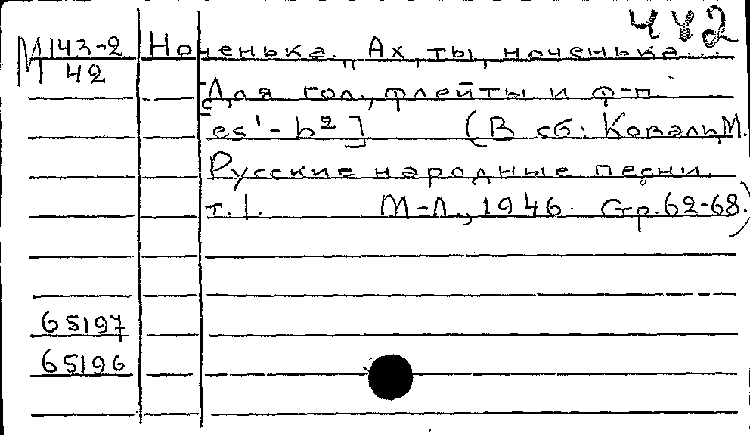 442
М 143-2 Ноченька. „Ах, ты, ноченька...
42
Для гол., флейты и ф-п.
[es¹-b²] (В сб: Коваль, М.
Русские народные песни.
т. 1. М-Л., 1946. Стр. 62-68.)
65197
65196